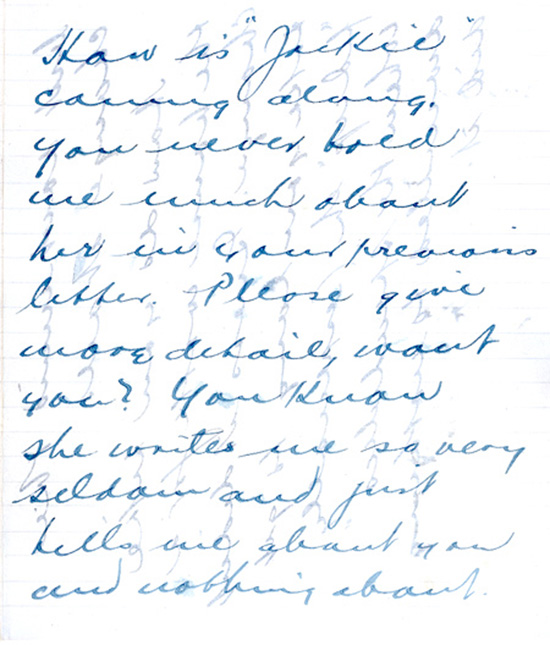 How is "Jackie"
coming along.
You never told
me much about
her in your previous
letter. Please give
more detail, wont
you? You Know
she writes me so very
seldom and just
tells me about you
and nothing about.